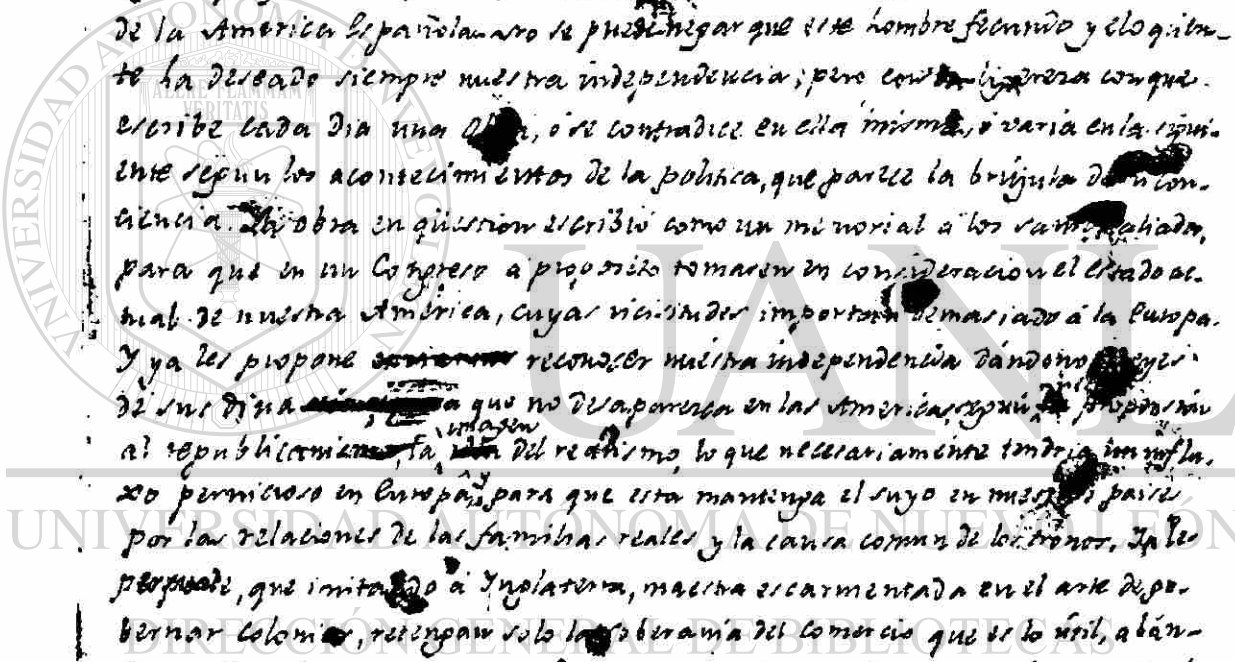 de la America Española. No se puede negar que este hombre fecundo y eloqüen-
te ha deseado siempre nuestra independencia; pero con la ligereza con que
escribe cada dia una obra, ó se contradice en ella misma, ó varia en la sigui-
ente segun los acontecimientos de la politica, que parece la brújula de su con-
ciencia. La obra en qüestion escribió como un memorial á los santos aliados,
para que en un Congreso a proposito tomasen en consideracion el estado ac-
tual de nuestra America, cuyas vicisitudes importan demasiado á la Europa.
Y ya les propone reconocer nuestra independencia dándonos Reyes
de sus dina que no desaparezca en las Americas, segun propension
al republicanismo, la imagen del realismo, lo que necesariamente tendria un influ-
xo pernicioso en Europa, y para que esta mantenga el suyo en nuestros paises
por las relaciones de las familias reales y la causa comun de los tronos. Ya les
persuade, que imitando á Inglaterra, maestra escarmentada en el arte de go-
bernar colonias, retengan solo la soberania del comercio que es lo útil, abán-
UNIVERSIDAD AUTÓNOMA DE NUEVO LEÓN
ALERE FLAMMAM
VERITATIS
UANL
UNIVERSIDAD AUTÓNOMA DE NUEVO LEÓN
DIRECCIÓN GENERAL DE BIBLIOTECAS